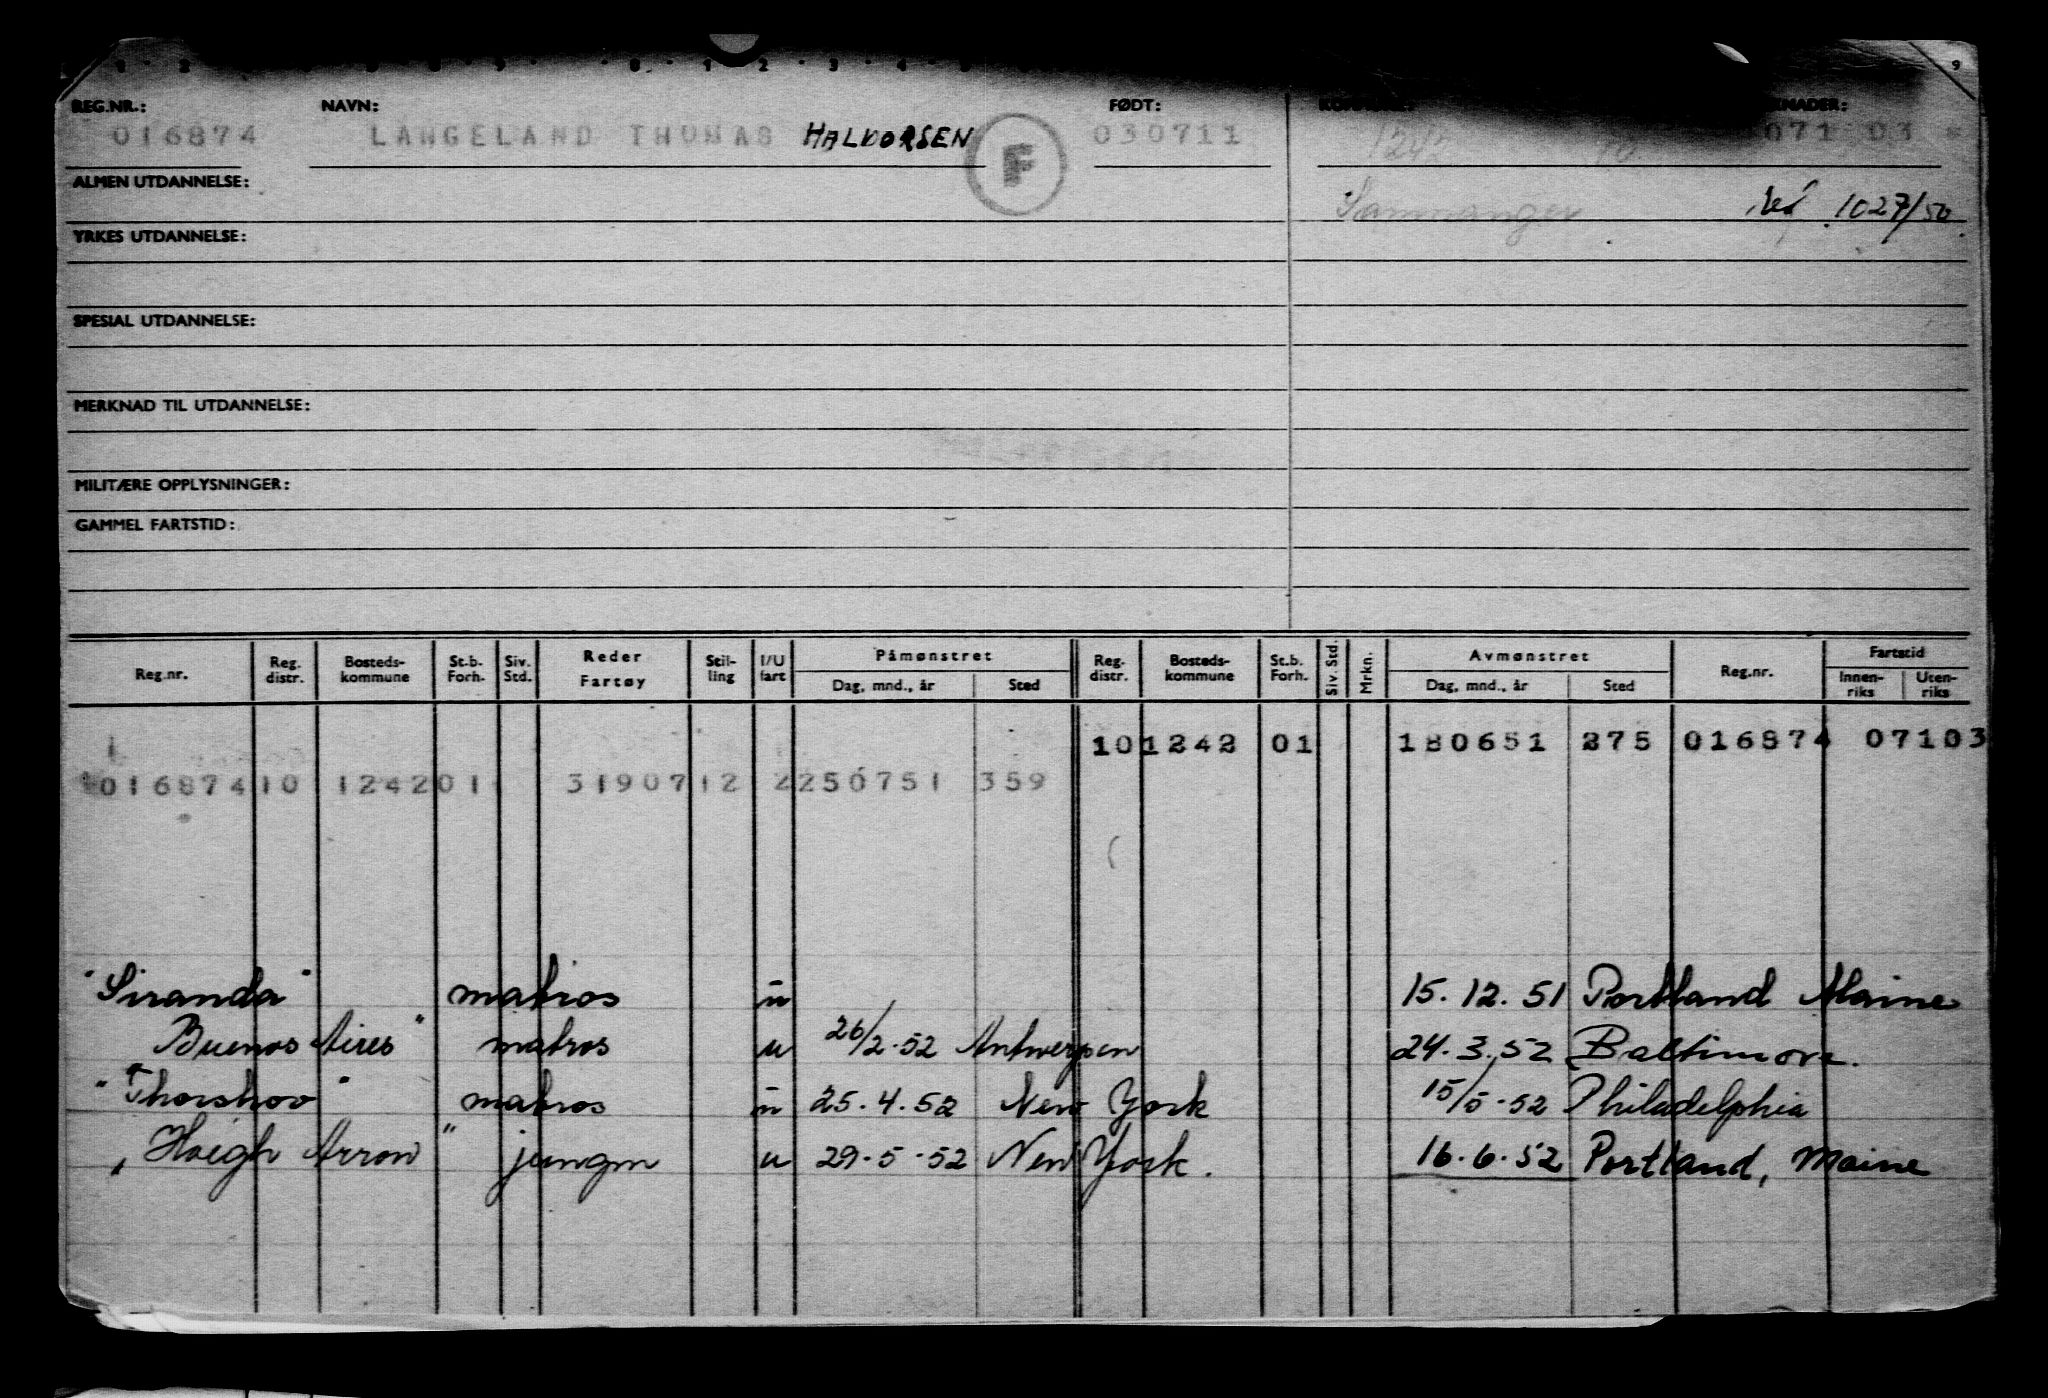 REG.NR.: NAVN: FØDT:
016874 LANGELAND THOMAS HALDORSEN F 030711 1242 071 03 *
ALMEN UTDANNELSE:
Samnanger 1027/50
YRKES UTDANNELSE:
SPESIAL UTDANNELSE:
MERKNAD TIL UTDANNELSE:
MILITÆRE OPPLYSNINGER:
GAMMEL FARTSTID:
Reg.nr. Reg. distr. Bosteds-kommune St.b. Forh. Siv. Std. Reder Fartøy Stil-ling I/U fart Påmønstret Dag, mnd., år Sted Reg. distr. Bosteds-kommune St.b. Forh. Siv. Std. Mrkn. Avmønstret Dag, mnd., år Sted Reg.nr. Fartstid Innen-riks Uten-riks
10 1242 01 180651 275 016874 07103
016874 10 1242 01 31907 12 2 250751 359
"Siranda" matros u 15.12.51 Portland Maine
Buenos Aires" matros u 26/2.52 Antwerpen 24.3.52 Baltimore.
"Thorshov" matros u 25.4.52 New York 15/5.52 Philadelphia
"Høegh Arron" jungm u 29.5.52 New York. 16.6.52 Portland, Maine